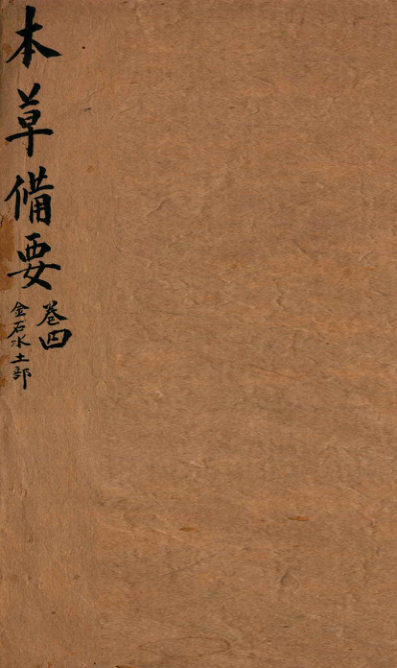 本草備要
卷四
金石水土部